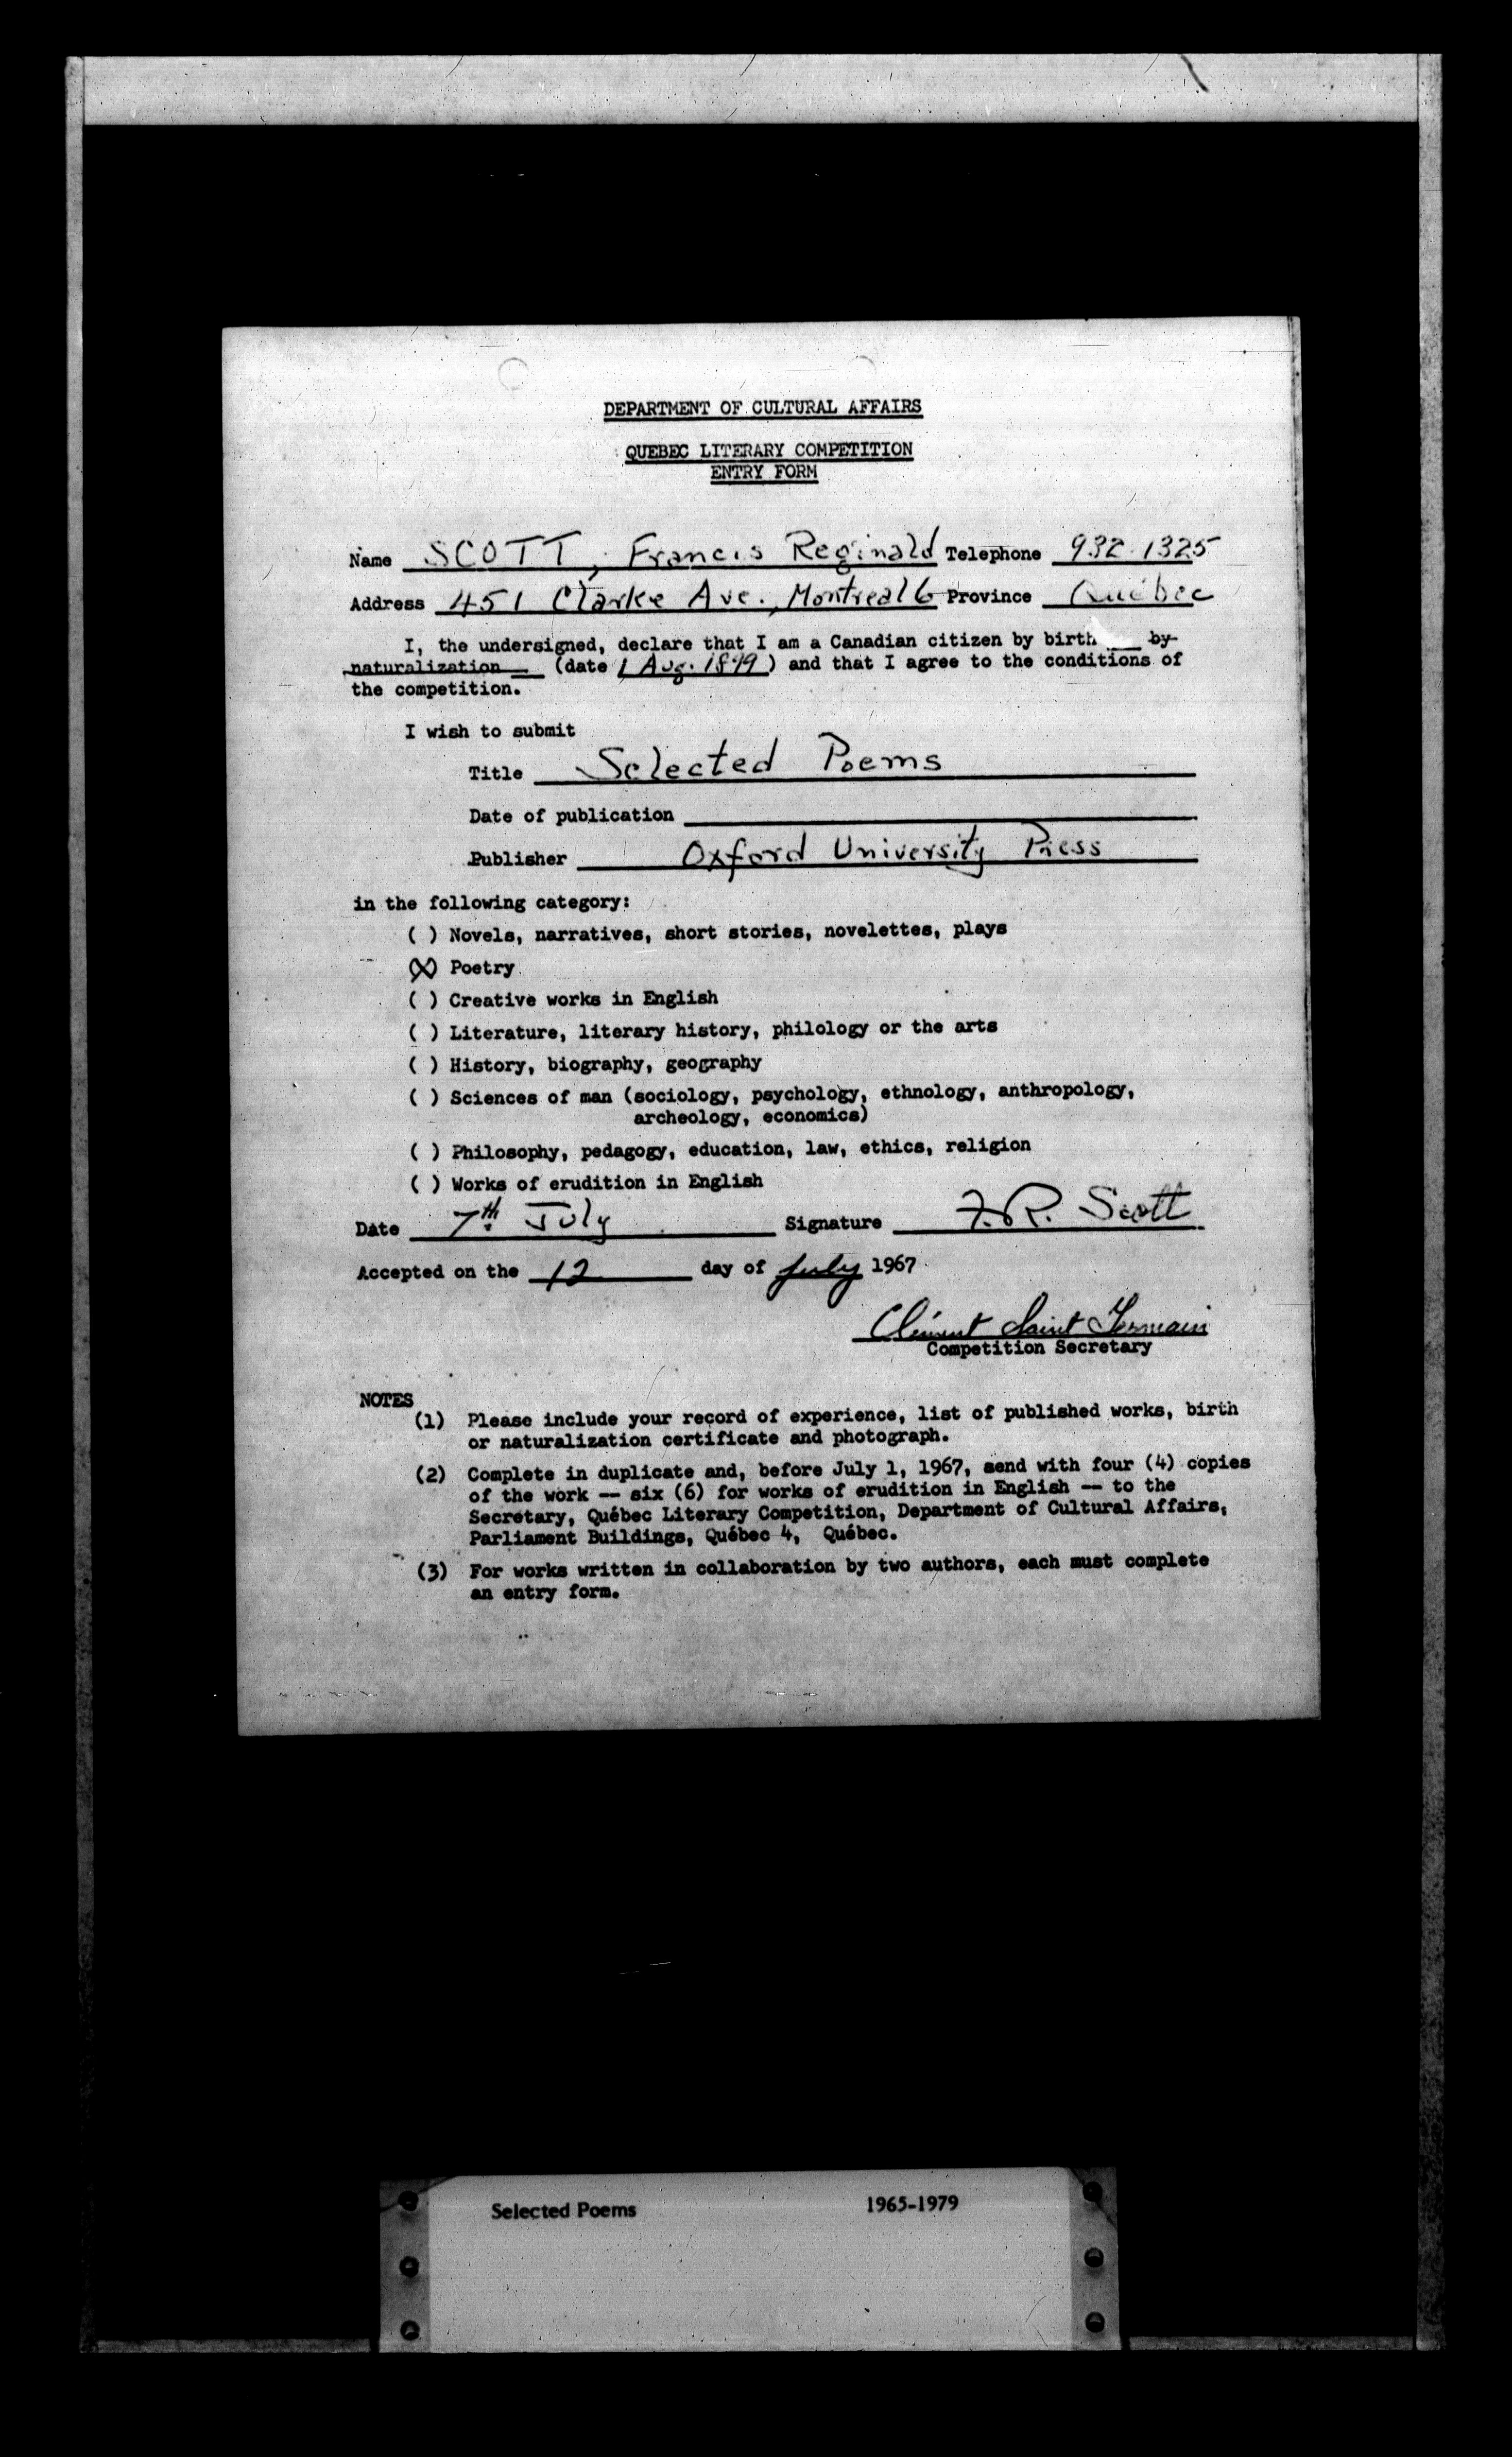 DEPARTMENT OF CULTURAL AFFAIRS
QUEBEC LITERARY COMPETITION
ENTRY FORM
Name SCOTT, Francis Reginald Telephone 932-1325
Address 451 Clarke Ave., Montreal 6 Province Québec
I, the undersigned, declare that I am a Canadian citizen by birth __ by
naturalization __ (date 1 Aug. 1899) and that I agree to the conditions of
the competition.
I wish to submit
Title Selected Poems
Date of publication
Publisher Oxford University Press
in the following category:
( ) Novels, narratives, short stories, novelettes, plays
(X) Poetry
( ) Creative works in English
( ) Literature, literary history, philology or the arts
( ) History, biography, geography
( ) Sciences of man (sociology, psychology, ethnology, anthropology,
archeology, economics)
( ) Philosophy, pedagogy, education, law, ethics, religion
( ) Works of erudition in English
Date 7th July Signature F.R. Scott
Accepted on the 12 day of July 1967
Clément Saint Germain
Competition Secretary
NOTES
(1) Please include your record of experience, list of published works, birth
or naturalization certificate and photograph.
(2) Complete in duplicate and, before July 1, 1967, send with four (4) copies
of the work -- six (6) for works of erudition in English -- to the
Secretary, Québec Literary Competition, Department of Cultural Affairs,
Parliament Buildings, Québec 4, Québec.
(3) For works written in collaboration by two authors, each must complete
an entry form.
Selected Poems 1965-1979